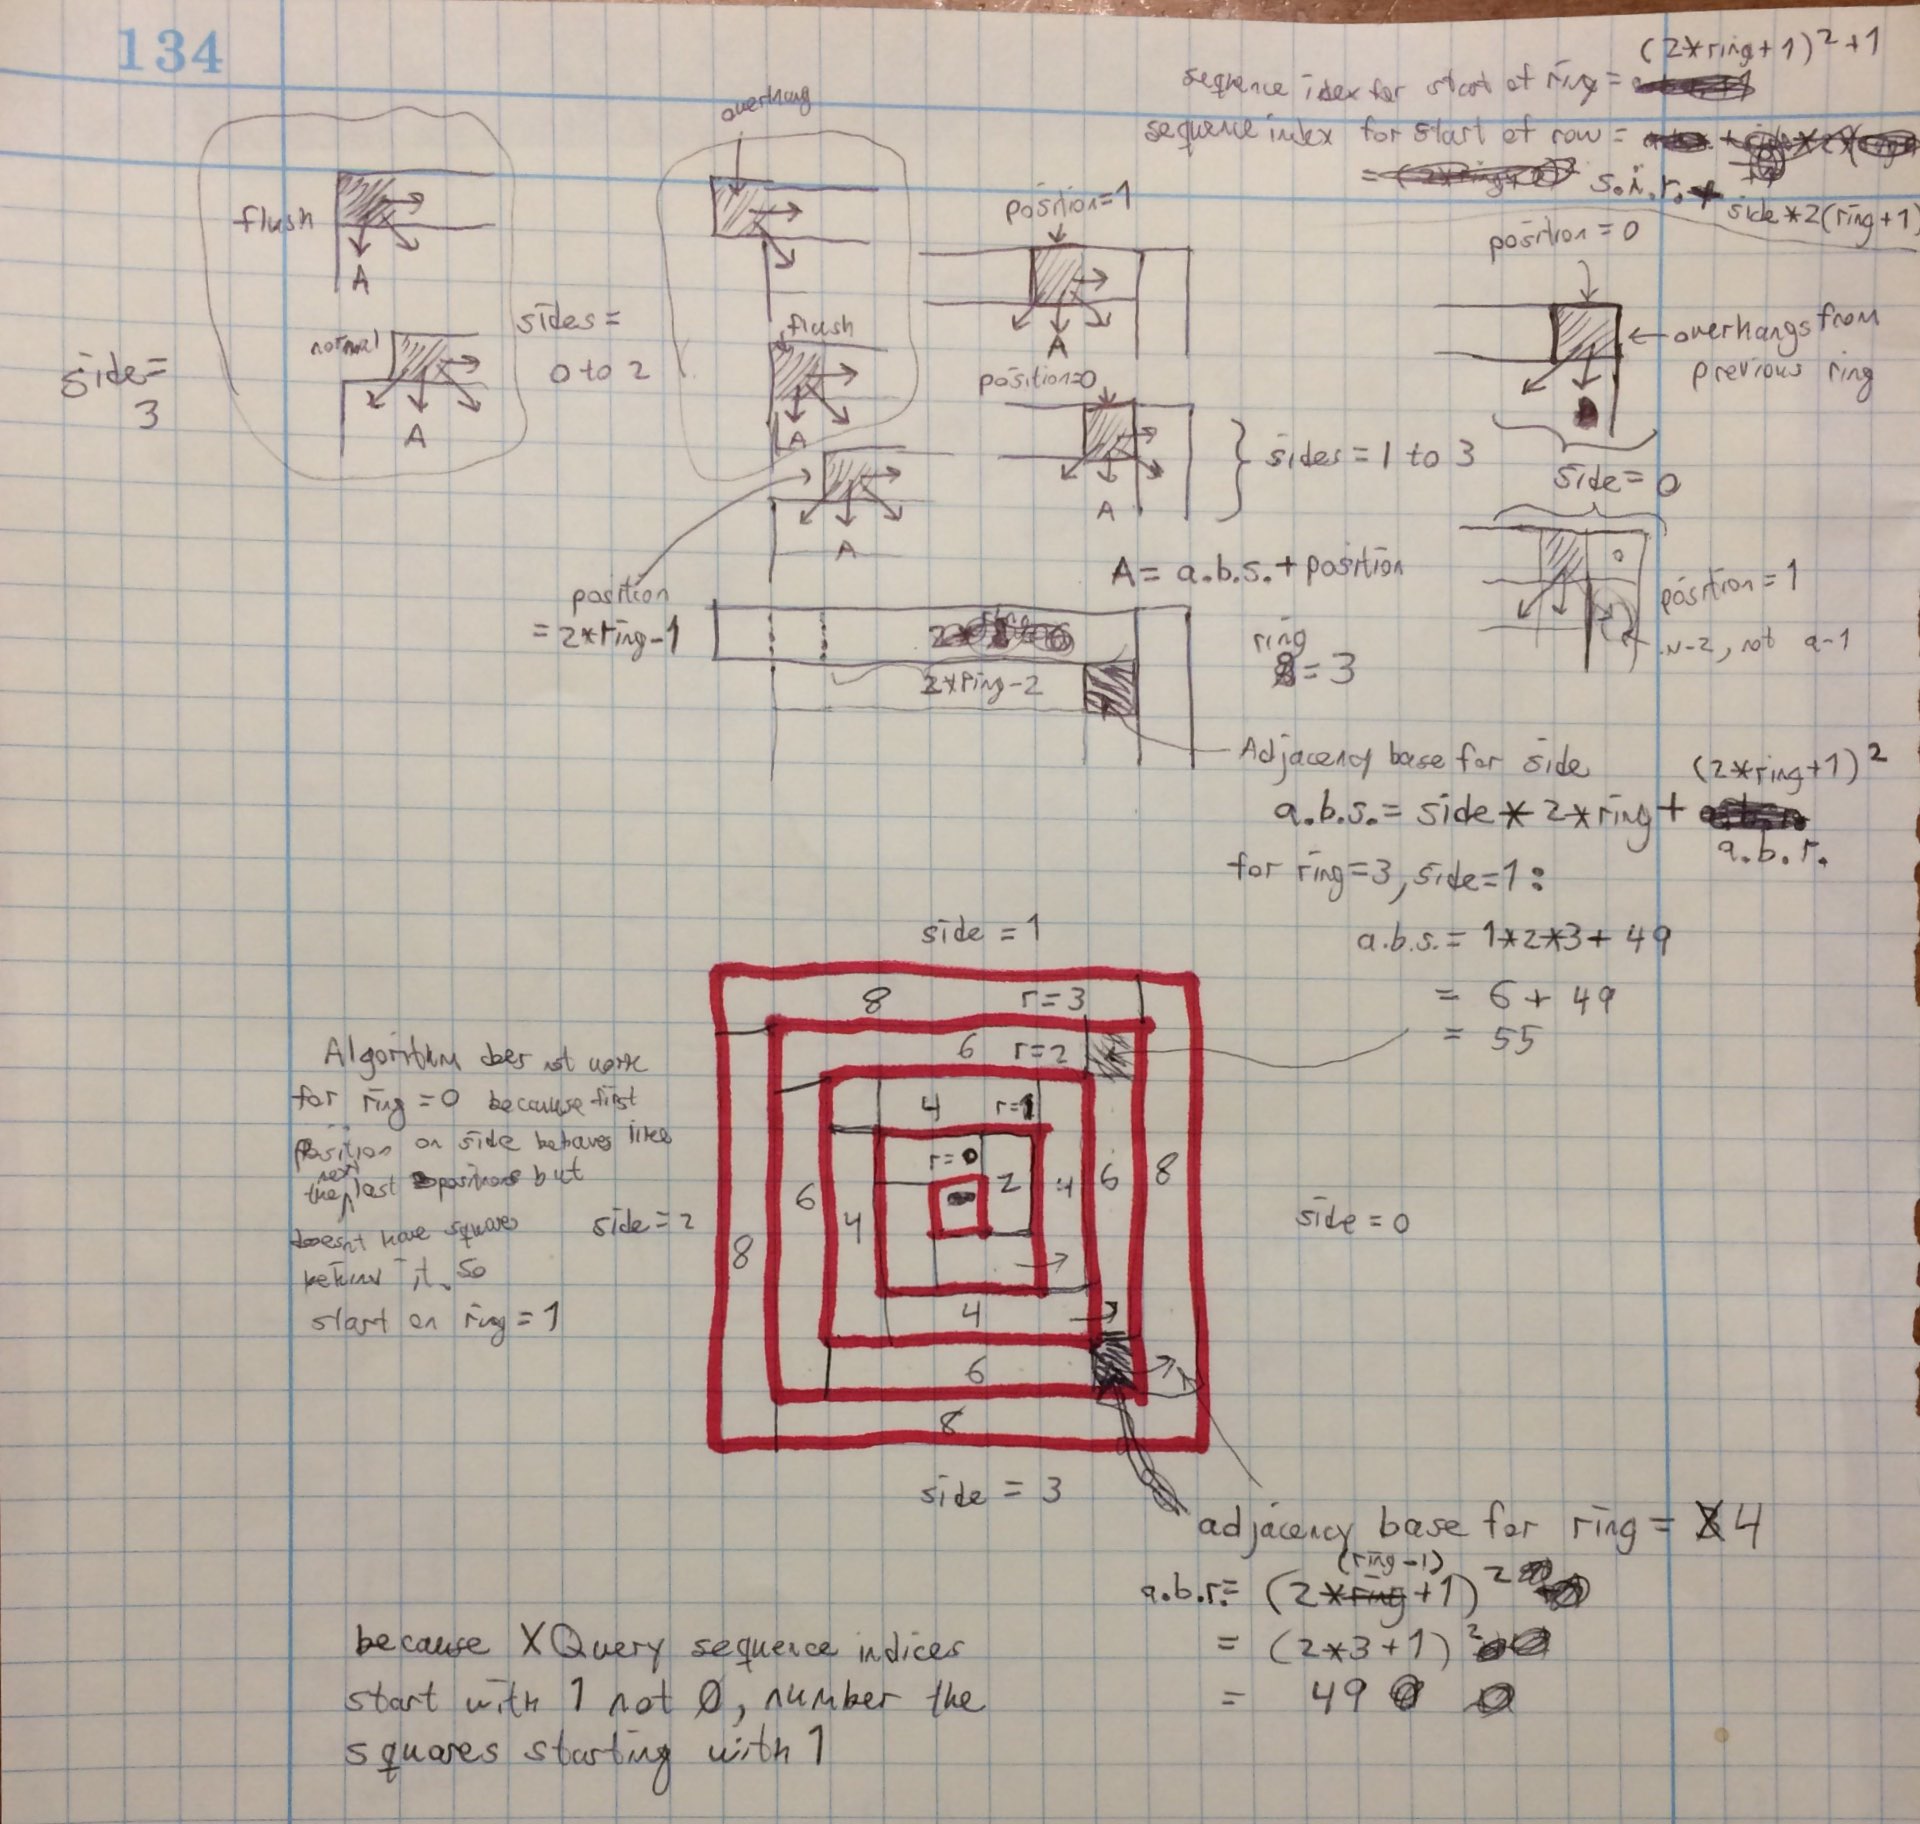 134
(2*ring+1)²+1
sequence index for start of ring =
sequence index for start of row =
= s.i.r. +
side*2(ring+1)
overhang
flush
A
normal
A
side=
3
sides=
0 to 2
flush
A
A
position
= 2*ring-1
position=1
A
position=0
A
} sides = 1 to 3
position = 0
← overhangs from
previous ring
side=0
0
position = 1
n-2, not a-1
A = a.b.s. + position
2*ring-2
ring
= 3
Adjacency base for side
(2*ring+1)²
a.b.s. = side * 2 * ring +
a.b.r.
for ring=3, side=1:
a.b.s. = 1*2*3 + 49
= 6 + 49
= 55
side = 1
8 r=3
6 r=2
4 r=1
r=0
2 4 6 8
8 6 4
4
6
8
side = 2
side = 0
side = 3
Algorithm does not work
for ring = 0 because first
position on side behaves like
the next last position but
doesn't have square
behind it. So
start on ring = 1
adjacency base for ring = 4
(ring-1)
a.b.r. = (2*ring+1)²
= (2*3+1)²
= 49
because XQuery sequence indices
start with 1 not 0, number the
squares starting with 1